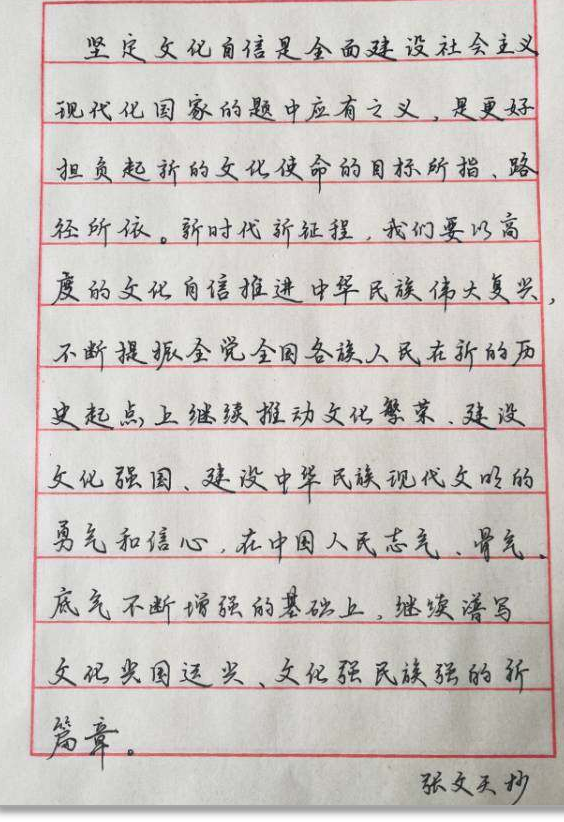 坚定文化自信是全面建设社会主义
现代化国家的题中应有之义，是更好
担负起新的文化使命的目标所指、路
径所依。新时代新征程，我们要以高
度的文化自信推进中华民族伟大复兴，
不断提振全党全国各族人民在新的历
史起点上继续推动文化繁荣、建设
文化强国、建设中华民族现代文明的
勇气和信心，在中国人民志气、骨气、
底气不断增强的基础上，继续谱写
文化兴国运兴、文化强民族强的新
篇章。
张文天抄